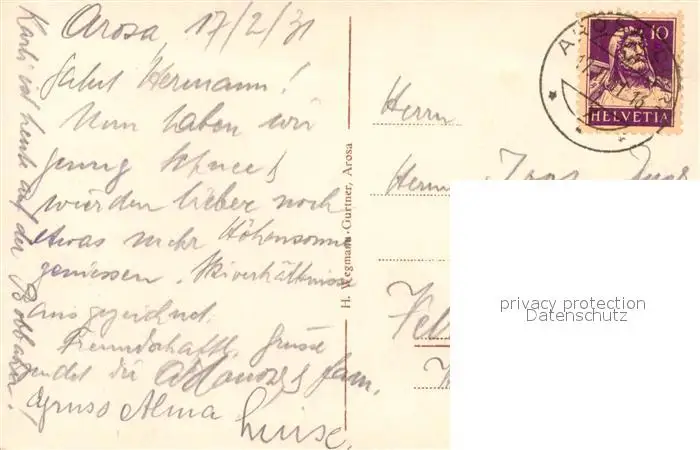 Arosa, 17/2/31
Salut Hermann!
Nun haben wir
genug Schnee &
würden lieber noch
etwas mehr Höhensonne
geniessen. Skiverhältnisse
ausgezeichnet.
Freundschaftl. Grüsse
sendet dir & Fam.
Gruss Alma
Luise.
Karli ist heute auf der Bobbahn!
H. Wegmann-Gurtner, Arosa
Herrn
Herrn
AROSA
10
HELVETIA
privacy protection
Datenschutz